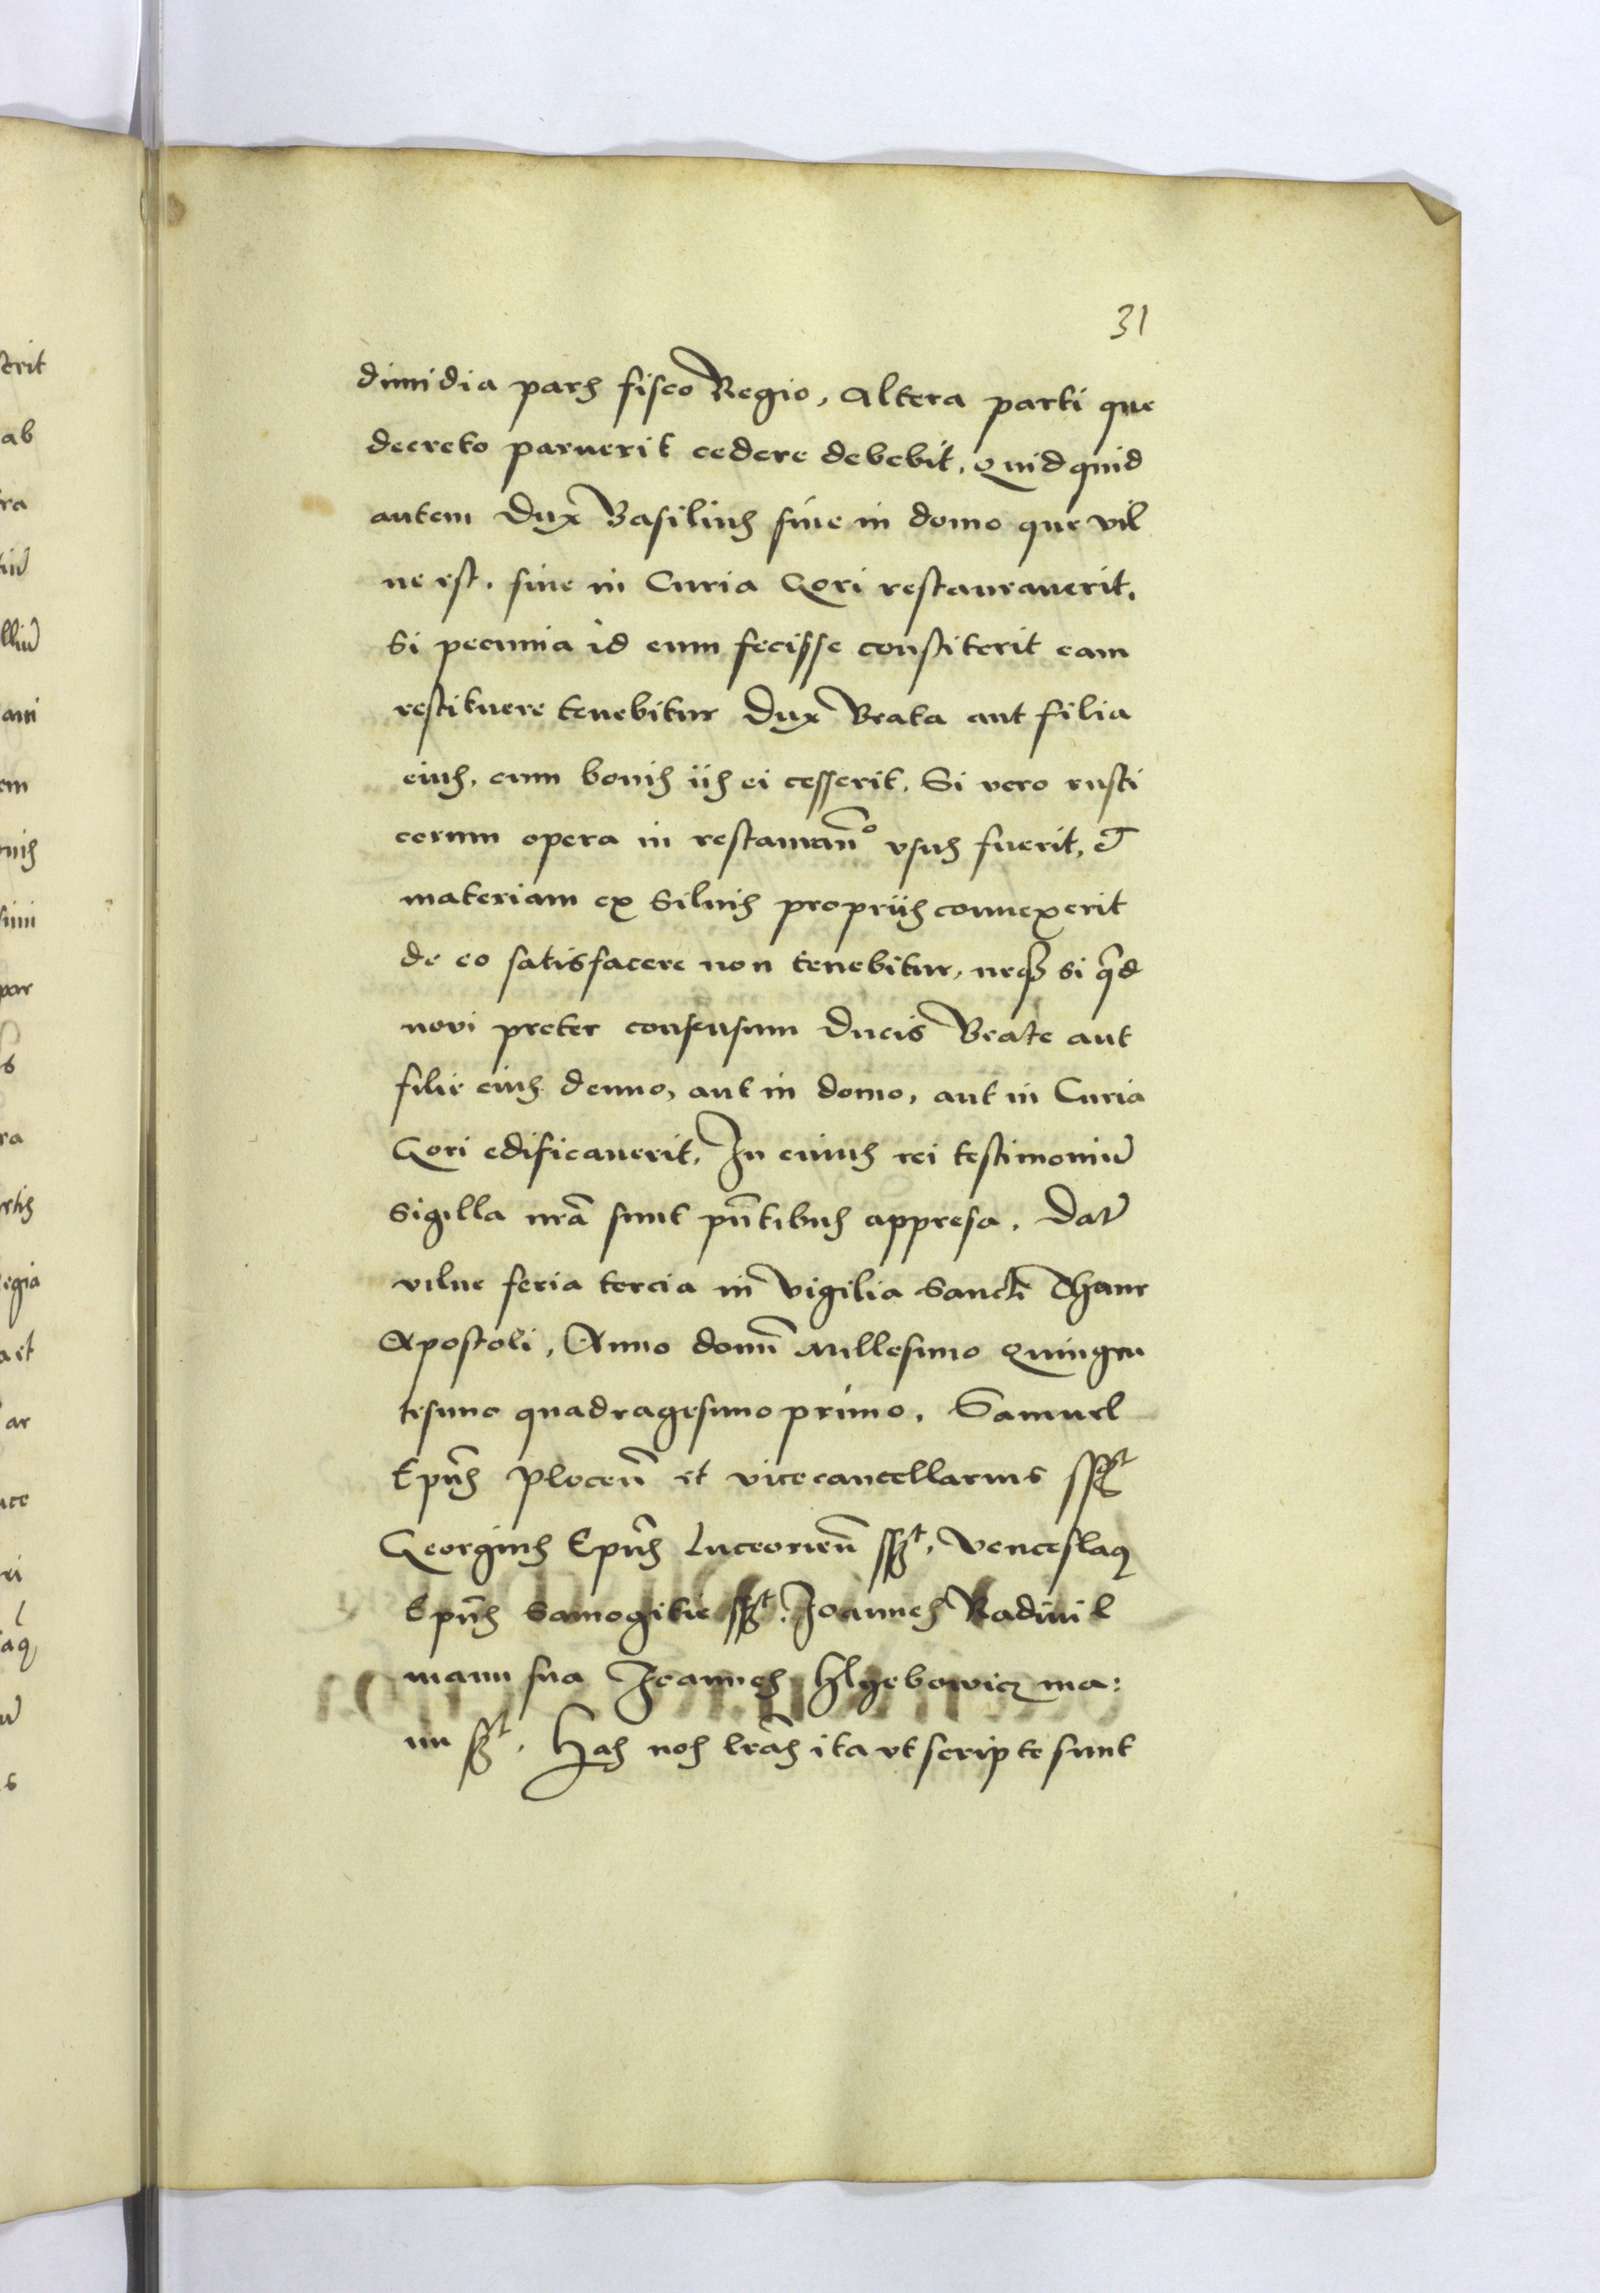 31
dimidia pars fisco Regio, altera parti que
decreto paruerit cedere debebit. Quidquid
autem Dux Basilius siue in domo que vil
ne est, siue in Curia Gori restaurauerit,
Si pecunia id eum fecisse constiterit eam
restituere tenebitur Dux Beata aut filia
eius, cum bonis iis ei cesserit. Si vero rusti
corum opera in restauranō vsus fuerit, et
materiam ex Siluis propriis conuexerit
de eo satisfacere non tenebitur, neqꝫ si qd̄
novi preter consensum Ducis Beate aut
filie eius denuo, aut in domo, aut in Curia
Gori edificauerit, In cuius rei testimoniū
Sigilla nrā sunt pn̄tibus appresa. Dat̄
vilne feria tercia in Vigilia Sancti Thome
Apostoli, Anno domī Millesimo Quingen
tesimo quadragesimo primo. Samuel
Epūs Plocen̄ et vicecancellarius sszt
Georgius Epūs Luceorien̄ sszt, Venceslaꝯ
Epūs Samogitie sszt. Joannes Radiuil
manu sua Joannes Hlyebowicz ma:
nu sszt. Has nos lrās ita vt scripte sunt
erit
ab
ra
tiū
lliū
ani
em
nis
simi
par
s
ra
rtis
egia
aet
ar
nce
ri
l
aꝯ
ū
s